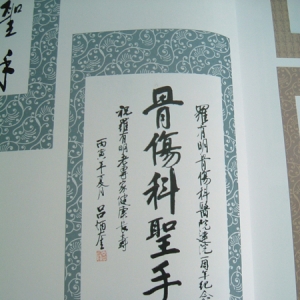 羅有明骨傷科醫院建院一周年紀念
骨傷科聖手
祝羅有明老專家健康長壽
丙寅年夏月
聖手